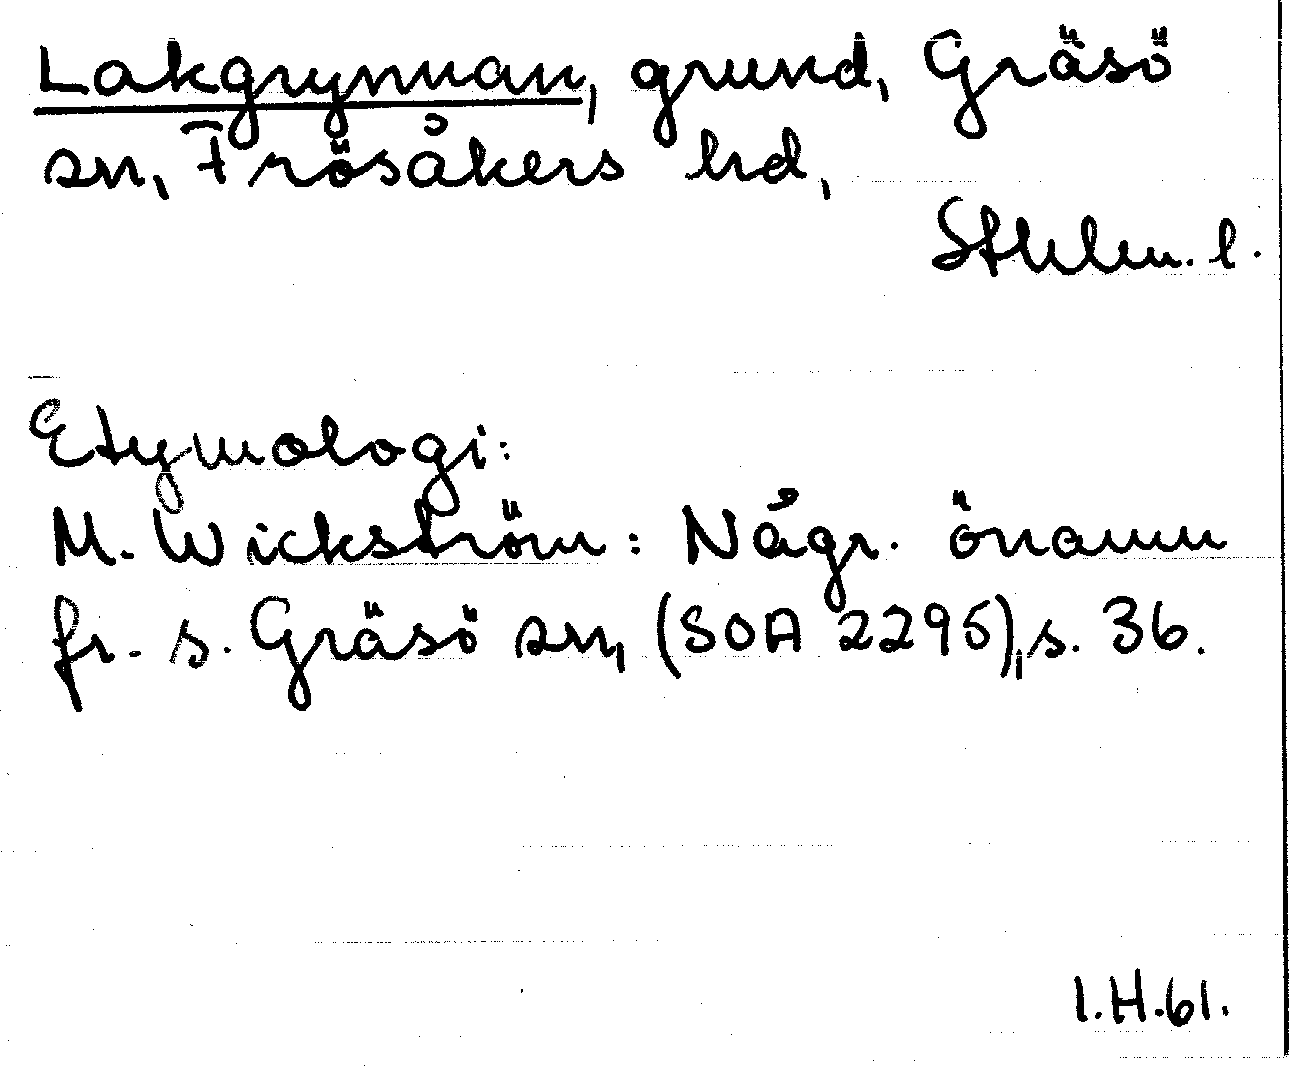 Lakgrynnan, grund, Gräsö
sn, Frösåkers hd,
Sthlm. l.
Etymologi:
M. Wickström: Någr. önamn
fr. s. Gräsö sn, (SOA 2295), s. 36.
I.H.61.